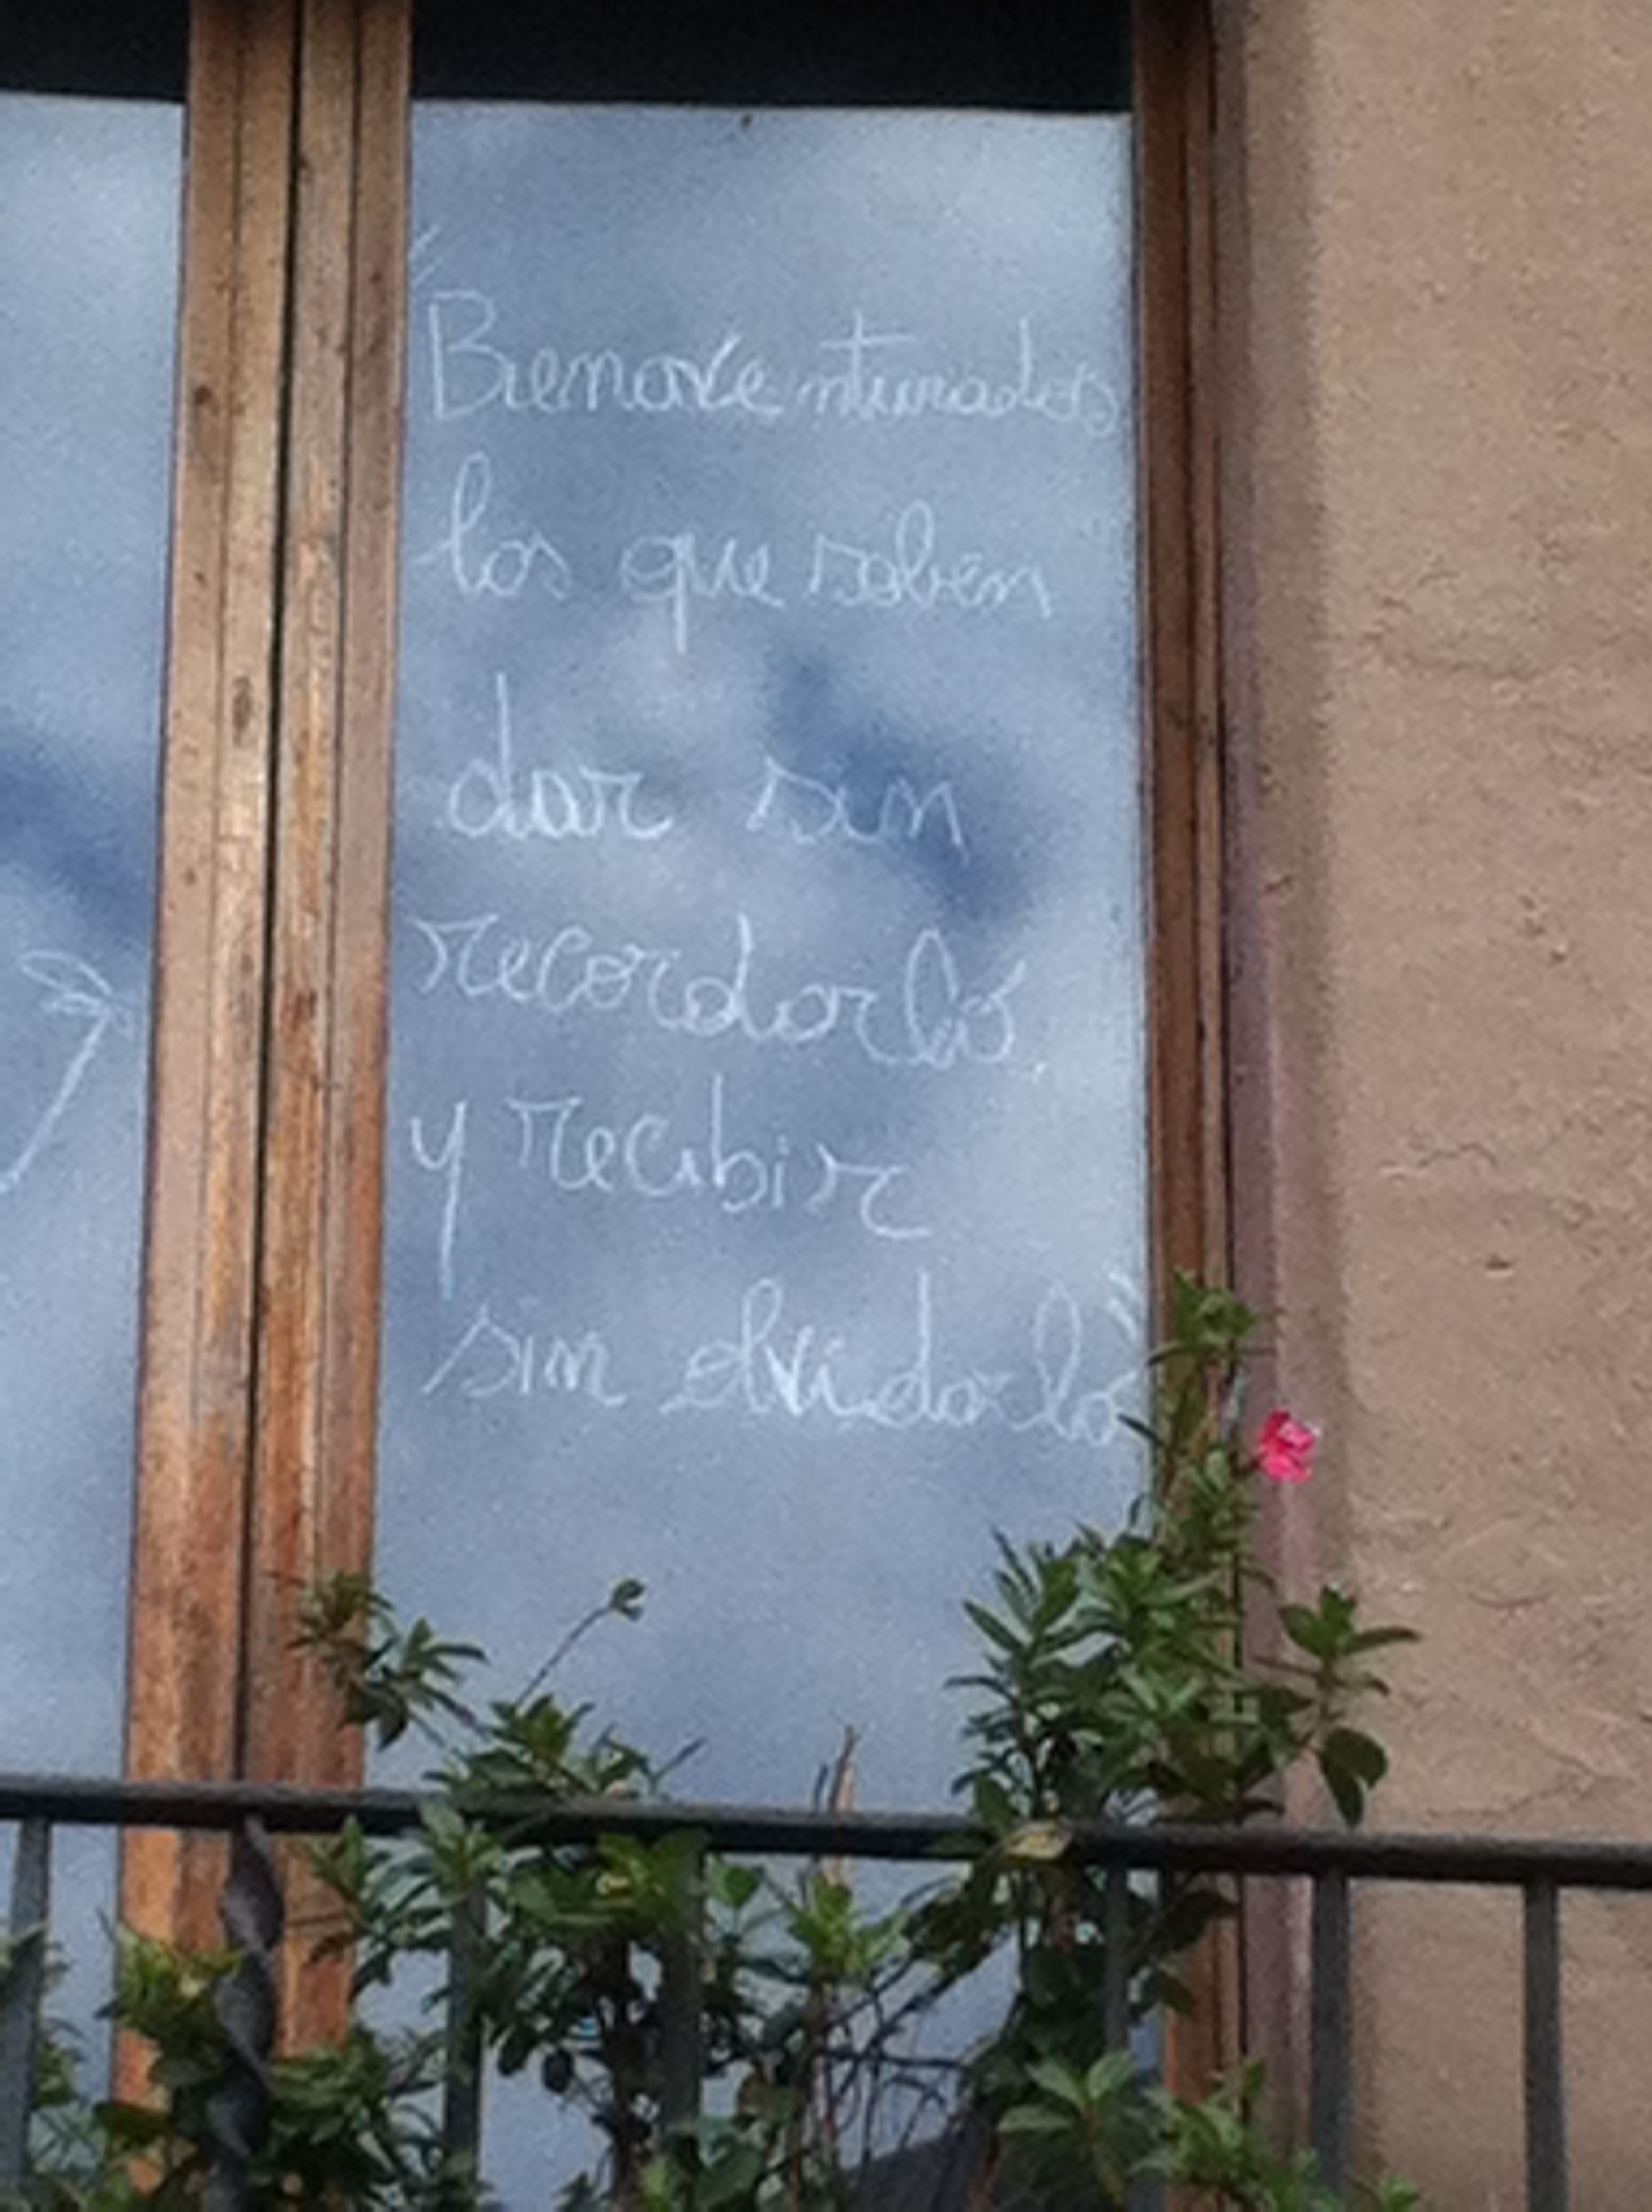 "Bienaventurados
los que saben
dar sin
recordarlo,
y recibir
sin olvidarlo"